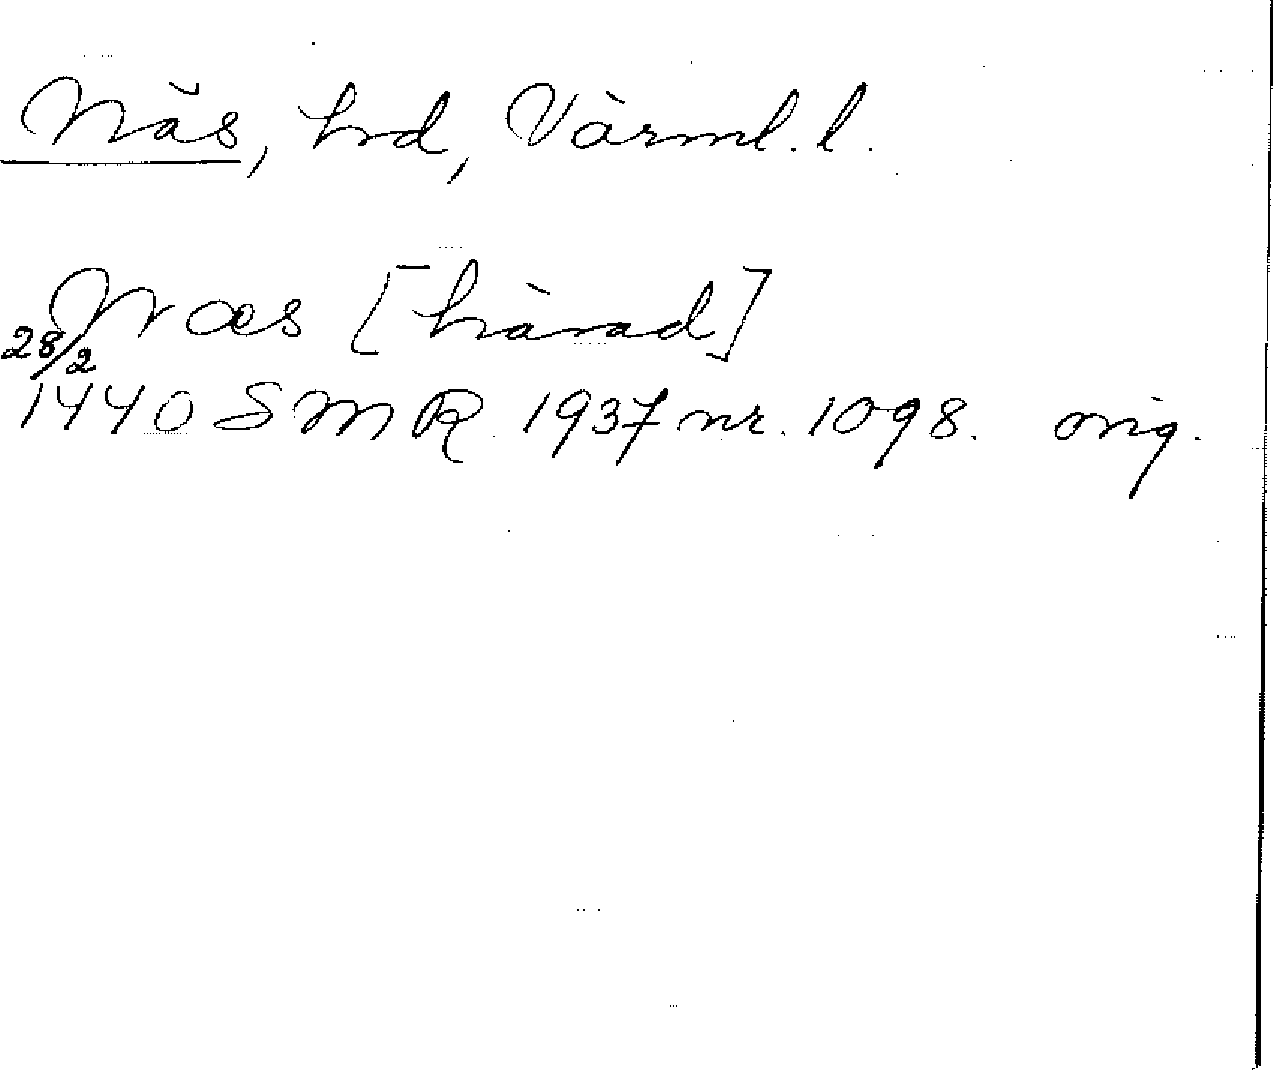 Näs, hrd, Värml. l.
Næs [härad]
28/2
1440 SMR 1937 nr. 1098. orig.